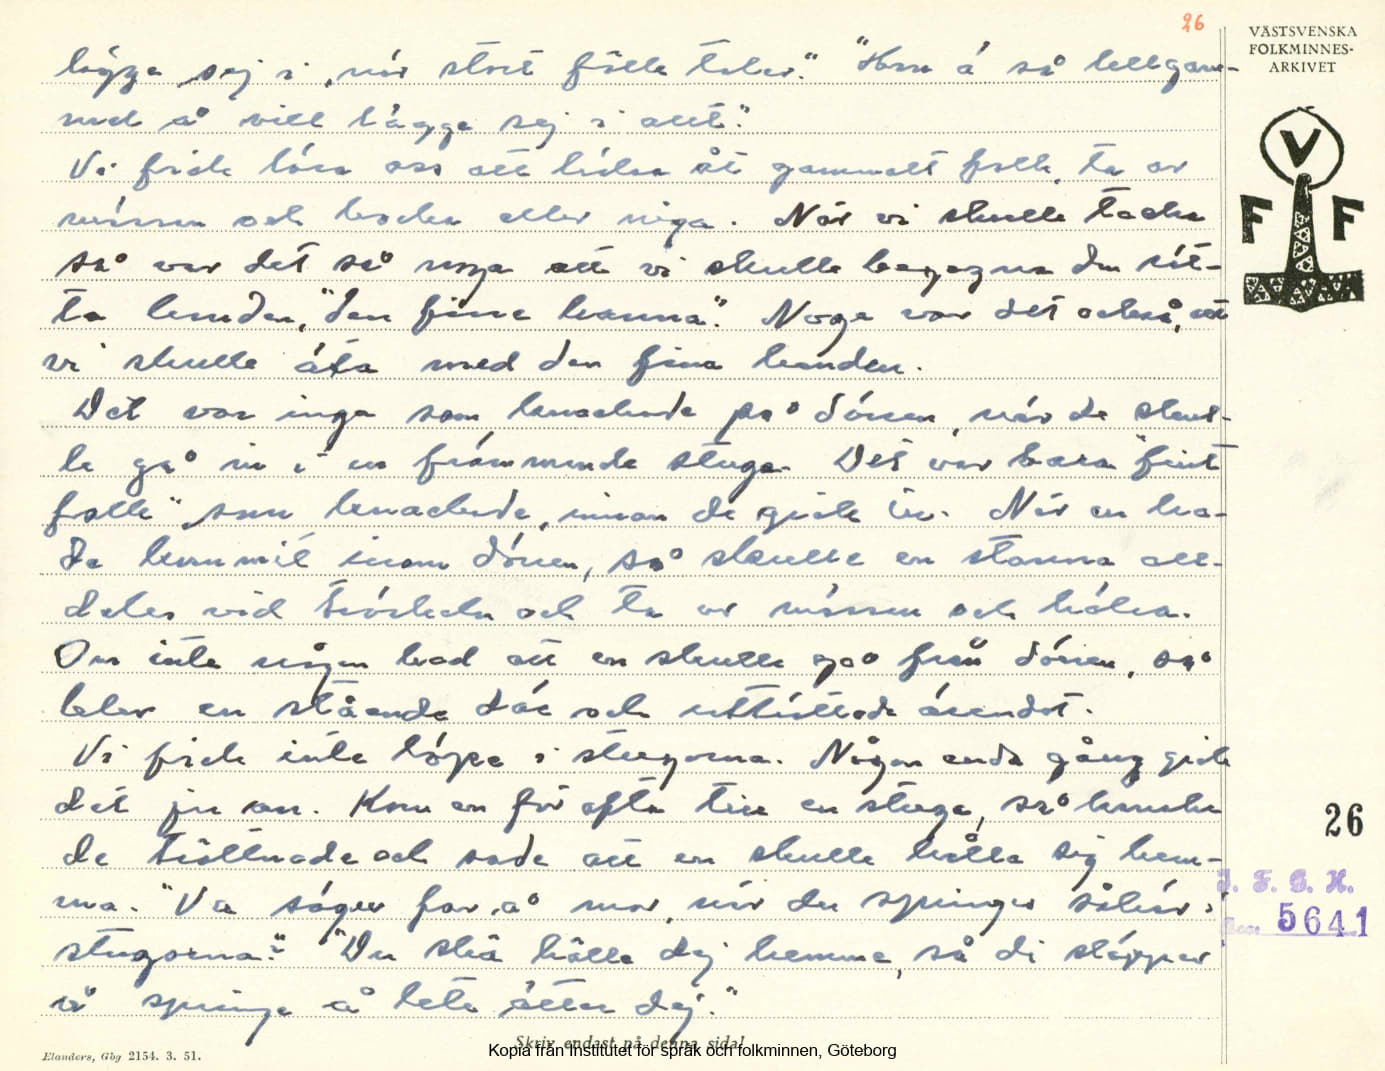 26
VÄSTSVENSKA
FOLKMINNES-
ARKIVET
V
F F
lägga sej i, när stort fôlk talar." "Hon ä så
med å vill lägga sej i allt."
Vi fick lära oss att hälsa åt gammalt folk, ta av
mössan och bocka eller niga. När vi skulle tacka
så var det så noga att vi skulle begagna den rät-
ta handen, "den fine hanna". Noga var det också, att
vi skulle äta med den fina handen.
Det var inga som knackade på dörren, när de skul-
le gå in i en främmande stuga. Det var bara "fint
folk" som knackade, innan de gick in. När en ha-
de kommit inom dörren, så skulle en stanna all-
deles vid tröskeln och ta av mössan och hälsa.
Om inte någon bad att en skulle gå från dörren, så
blev en stående där och uträttade ärendet.
Vi fick inte löpa i stugorna. Någon enda gång gick
det ju an. Kom en för ofta till en stuga, så kanske
de tröttnade och sade att en skulle hålla sig hem-
ma. "Va säger far å mor, när du springer såhär i
stugorna?" "Du ska hålla dej hemma, så di slipper
å springa å leta ätter dej."
26
I. F. G. H.
5641
Skriv endast på denna sida!
Elanders, Gbg 2154. 3. 51.
Kopia från Institutet för språk och folkminnen, Göteborg